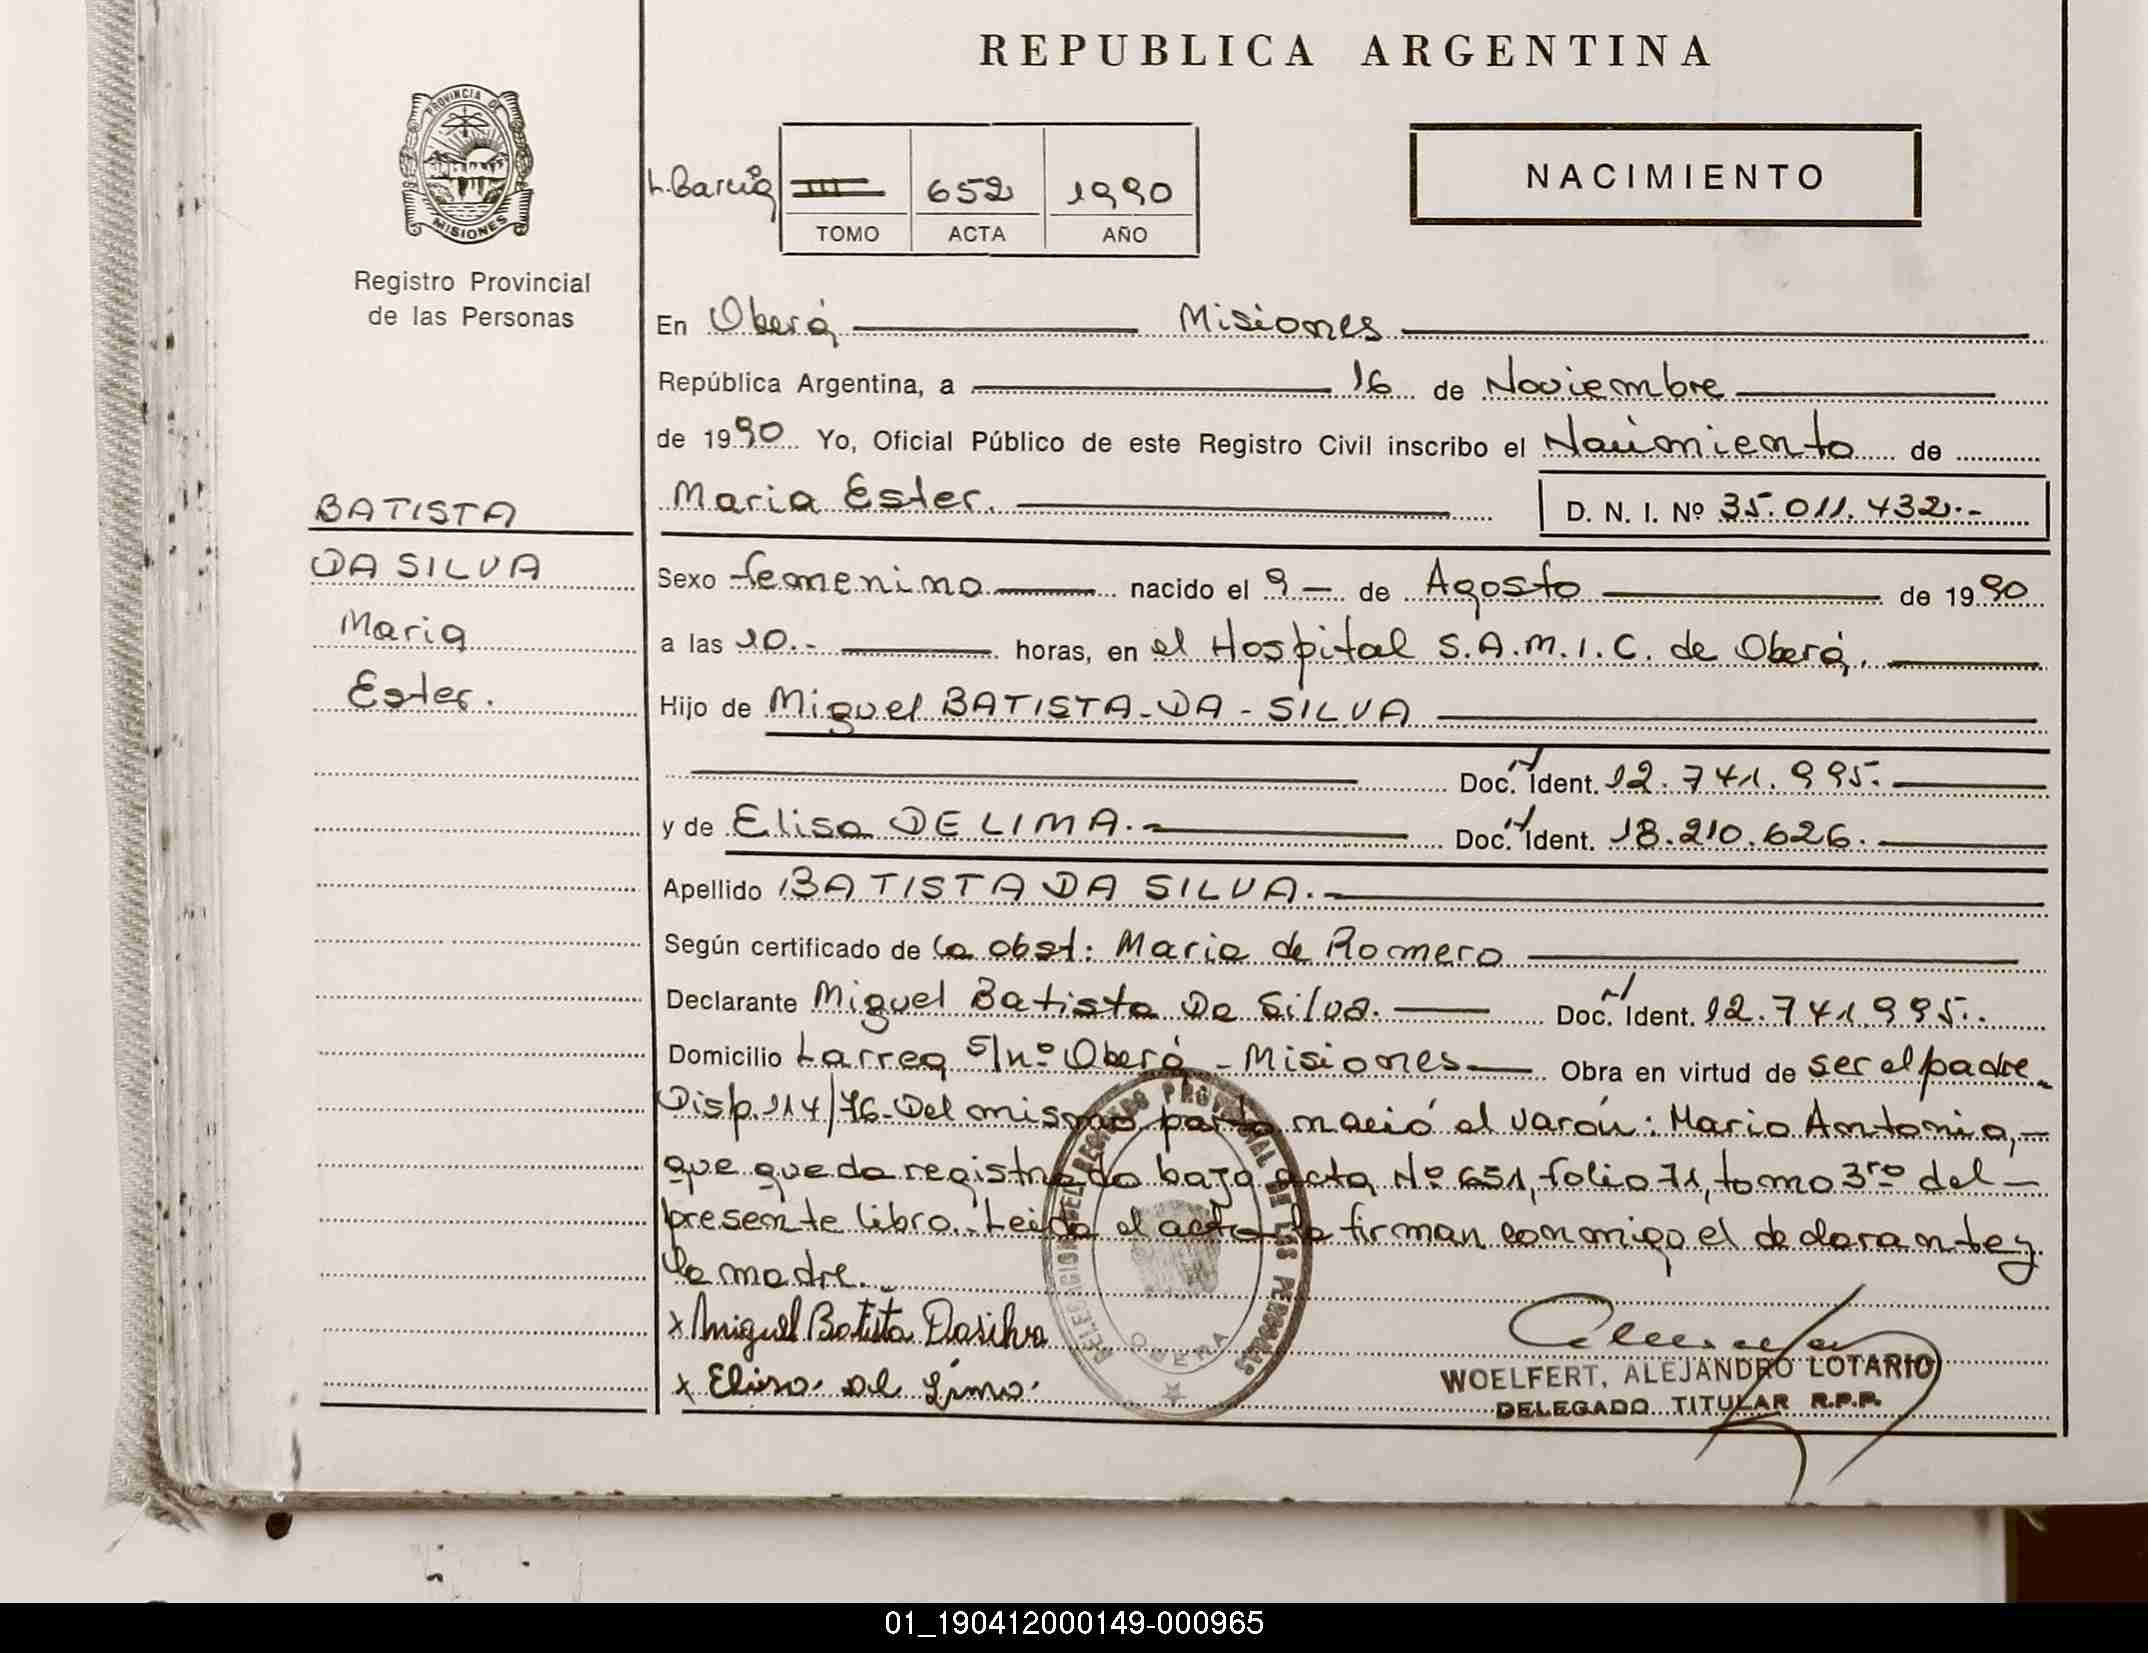 REPUBLICA ARGENTINA
PROVINCIA DE
MISIONES
Registro Provincial
de las Personas
III 652 1990
TOMO ACTA AÑO
NACIMIENTO
En Oberá Misiones
República Argentina, a 16 de Noviembre
de 1990 Yo, Oficial Público de este Registro Civil inscribo el Nacimiento de
Maria Ester. D. N. I. Nº 35.011.432.-
BATISTA
DA SILVA
Maria
Ester.
Sexo femenino nacido el 9 - de Agosto de 1990
a las 10.- horas, en el Hospital S.A.M.I.C. de Oberá.
Hijo de Miguel BATISTA-DA-SILVA
Doc. Ident. 12.741.995.
y de Elisa DE LIMA.- Doc. Ident. 18.210.626.
Apellido BATISTA DA SILVA.-
Según certificado de la obst: Maria de Romero
Declarante Miguel Batista Da Silva. Doc. Ident. 12.741.995.
Domicilio Larrea s/nº Oberá - Misiones Obra en virtud de ser el padre.
Disp. 114/76-Del mismo parto nació el varón: Mario Antonio,-
que queda registrado bajo acta Nº 651, folio 71, tomo 3ro del-
presente libro.-Leida el acta la firman conmigo el declarante y
la madre.
x Miguel Batista Dasilva
x Elisa de Lima
DELEGACION DEL REGISTRO PROVINCIAL DE LAS PERSONAS
OBERA
WOELFERT, ALEJANDRO LOTARIO
DELEGADO TITULAR R.P.P.
01_190412000149-000965